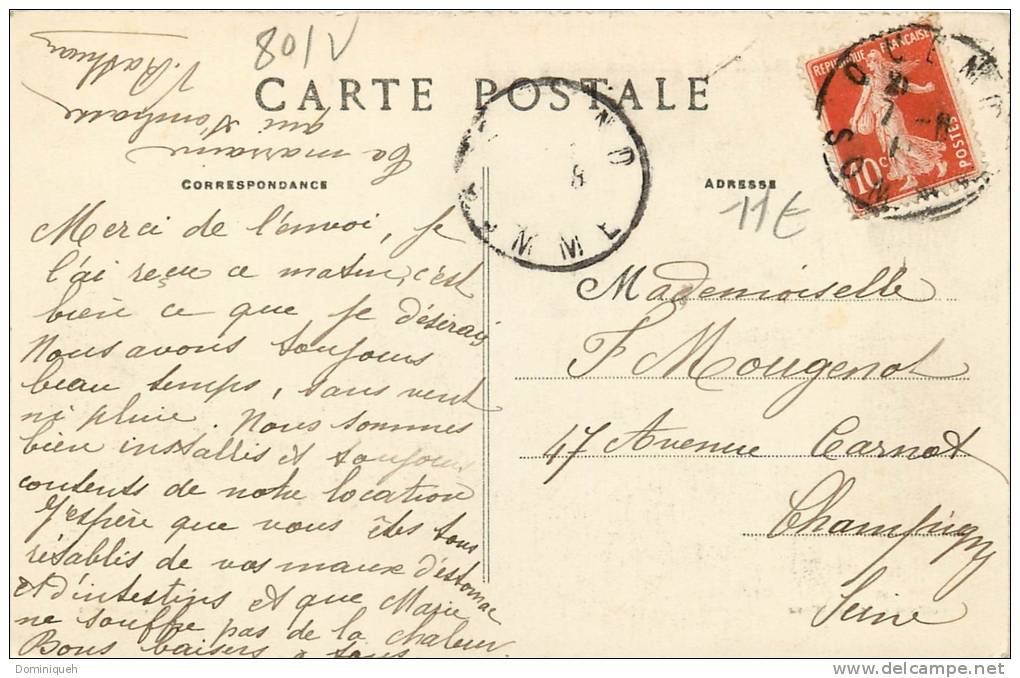 80/V
CARTE POSTALE
CORRESPONDANCE
ADRESSE
11€
REPUBLIQUE FRANÇAISE
10 C
POSTES
SOMME
Merci de l'envoi, je
l'ai reçue ce matin, c'est
bien ce que je désirais
Nous avons toujours
beau temps, sans vent
ni pluie. Nous sommes
bien installés et toujours
contents de notre location
J'espère que vous êtes tous
rétablis de vos maux d'estomac
et d'intestins et que Marie
ne souffre pas de la chaleur.
Bons baisers à tous
Ta marraine
qui t'embrasse
Mademoiselle
F Mougenot
47 Avenue Carnot
Champigny
Seine
Dominiqueh
delcampe.net